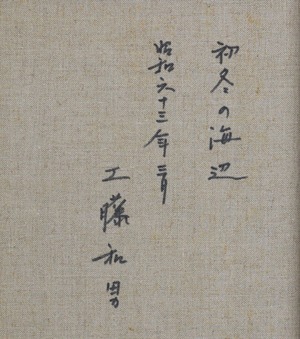 初冬の海辺
昭和六十三年三月
工藤和男